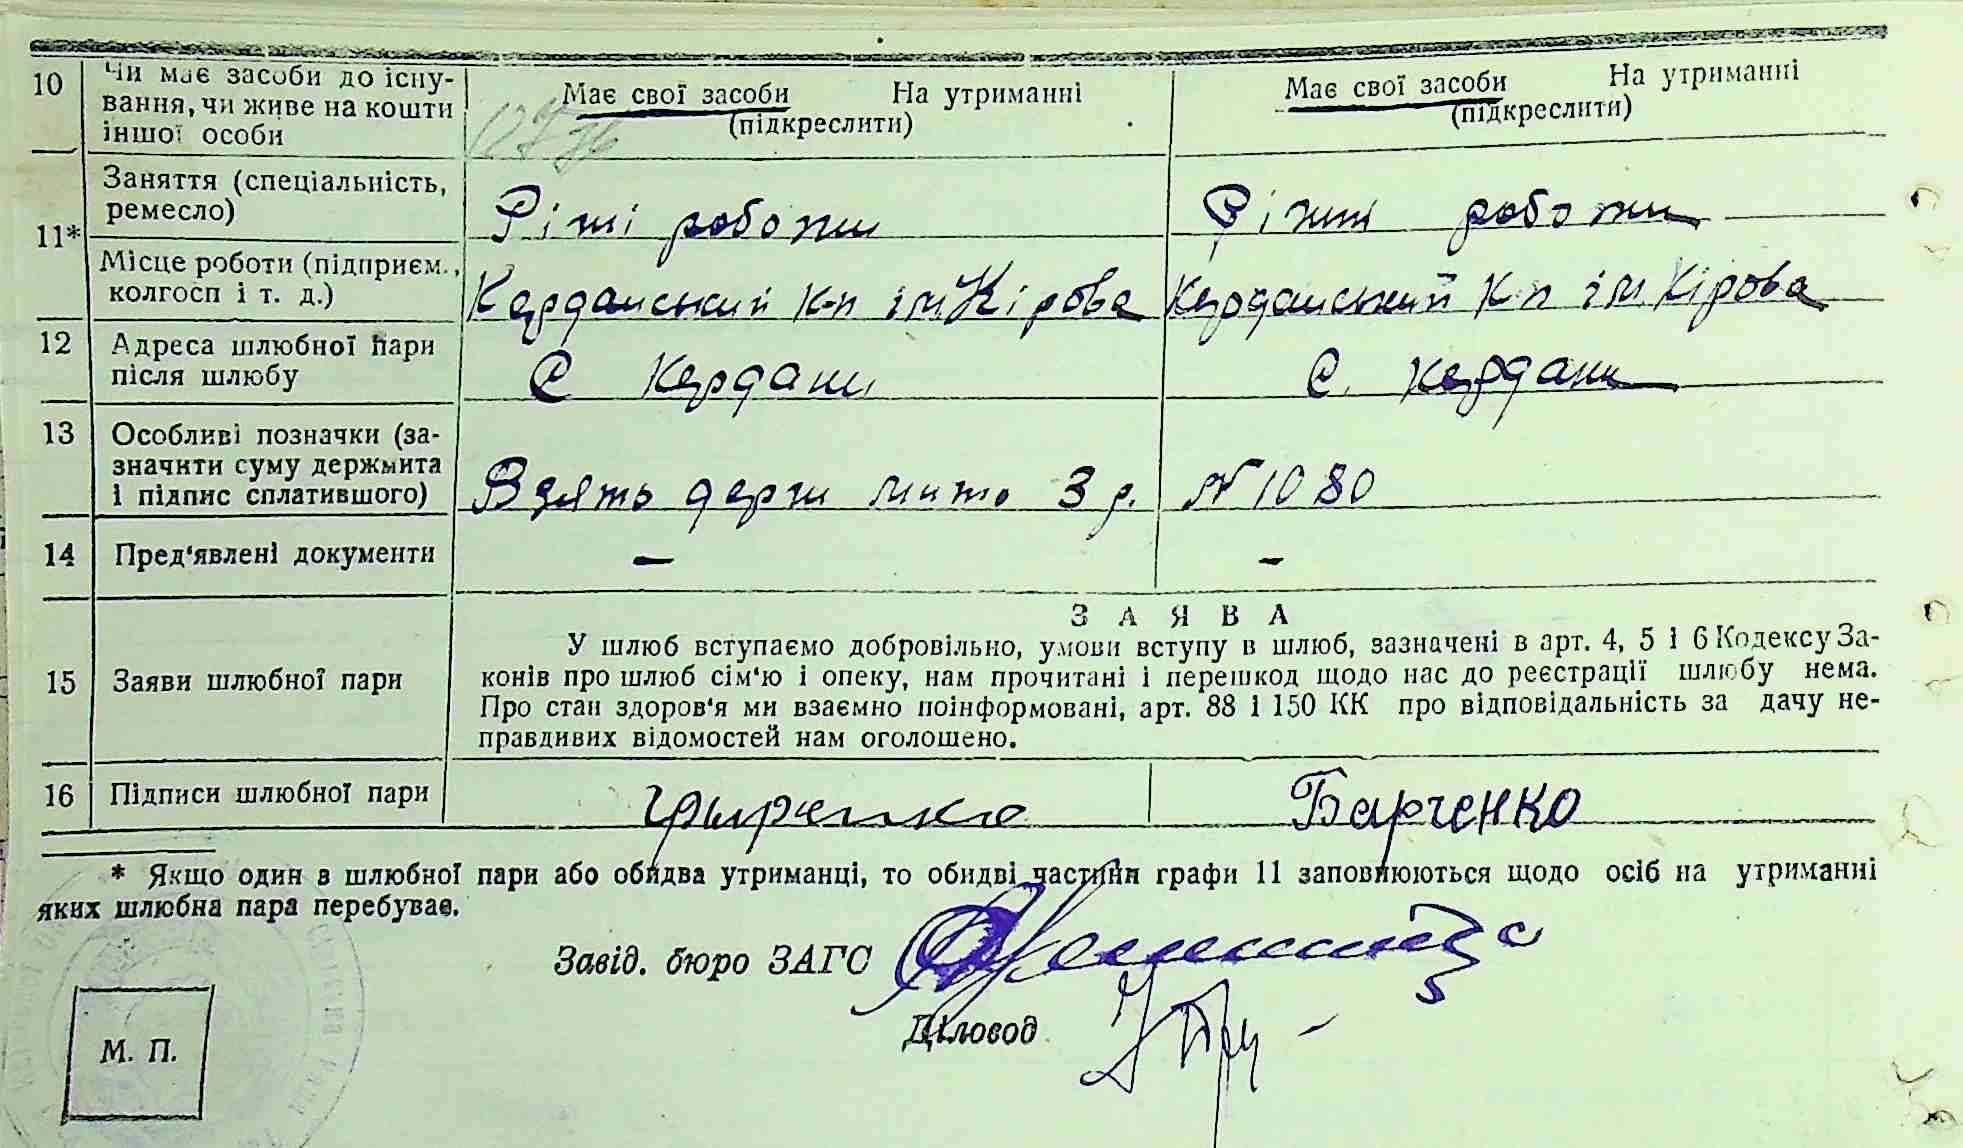 10 Чи має засоби до існу-
вання, чи живе на кошти
іншої особи
Має свої засоби На утриманні
(підкреслити)
Має свої засоби На утриманні
(підкреслити)
11*
Заняття (спеціальність,
ремесло)
Різні роботи
Різні роботи
Місце роботи (підприєм.,
колгосп і т. д.)
Карданський к-п ім. Кірова
Карданський к-п ім. Кірова
12 Адреса шлюбної пари
після шлюбу
С Кардани
С. Кардани
13 Особливі позначки (за-
значити суму держмита
і підпис сплатившого)
Взять держ мито 3 р.
№ 1080
14 Пред'явлені документи
— -
З А Я В А
15 Заяви шлюбної пари
У шлюб вступаємо добровільно, умови вступу в шлюб, зазначені в арт. 4, 5 і 6 Кодексу За-
конів про шлюб сім'ю і опеку, нам прочитані і перешкод щодо нас до реєстрації шлюбу нема.
Про стан здоров'я ми взаємно поінформовані, арт. 88 і 150 КК про відповідальність за дачу не-
правдивих відомостей нам оголошено.
16 Підписи шлюбної пари
Барченко
* Якщо один з шлюбної пари або обидва утриманці, то обидві частини графи 11 заповнюються щодо осіб на утриманні
яких шлюбна пара перебуває.
Завід. бюро ЗАГС
Діловод
М. П.